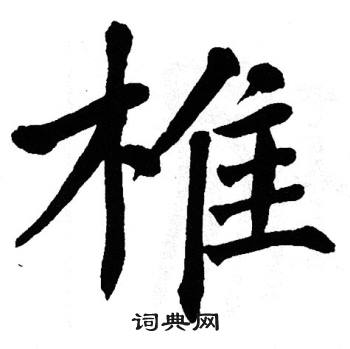 椎
词典网